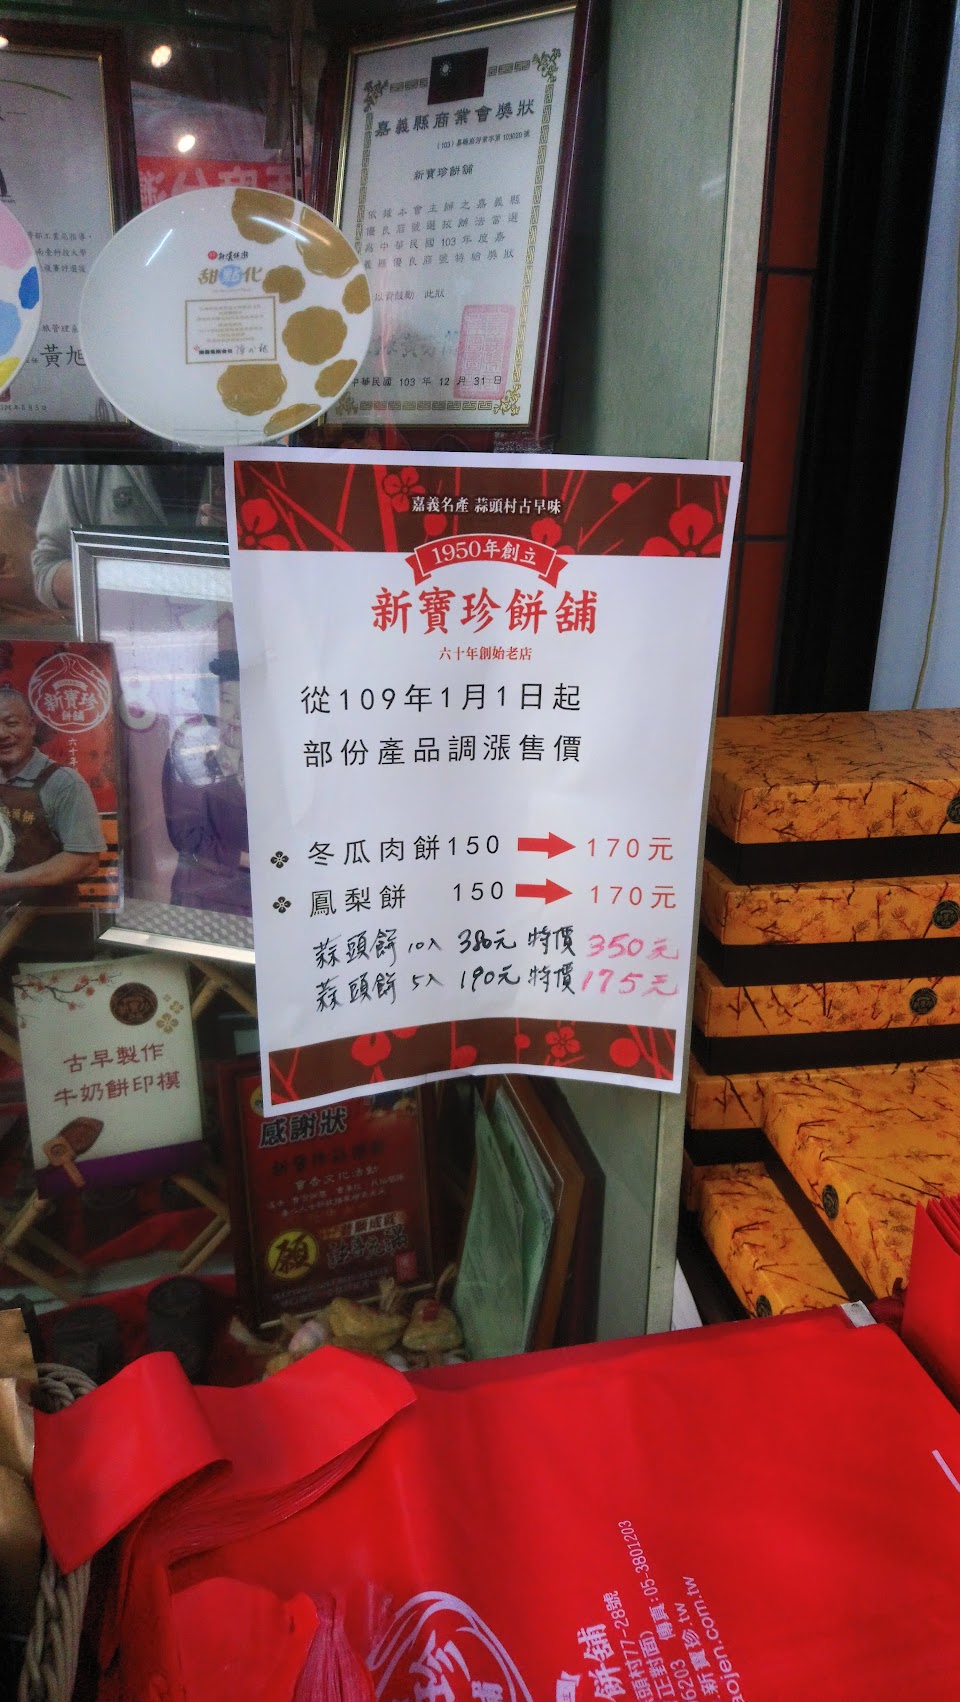 嘉義縣商業會獎狀
新寶珍餅舖
依據本會主辦之嘉義縣
優良商號選拔辦法當選
為中華民國103年度嘉
義縣優良商號特給獎狀
以資鼓勵 此狀
中華民國 103 年 12 月 31 日
甜點化
黃旭
嘉義名產 蒜頭村古早味
1950年創立
新寶珍餅舖
六十年創始老店
從109年1月1日起
部份產品調漲售價
冬瓜肉餅150 170元
鳳梨餅 150 170元
蒜頭餅 10入 380元 特價 350元
蒜頭餅 5入 190元 特價 175元
新寶珍
餅舖
六十年
古早製作
牛奶餅印模
感謝狀
願
餅舖
頭村77-28號
正對面) 傳真:05-3801203
6203 新寶珍.tw
ojen.com.tw